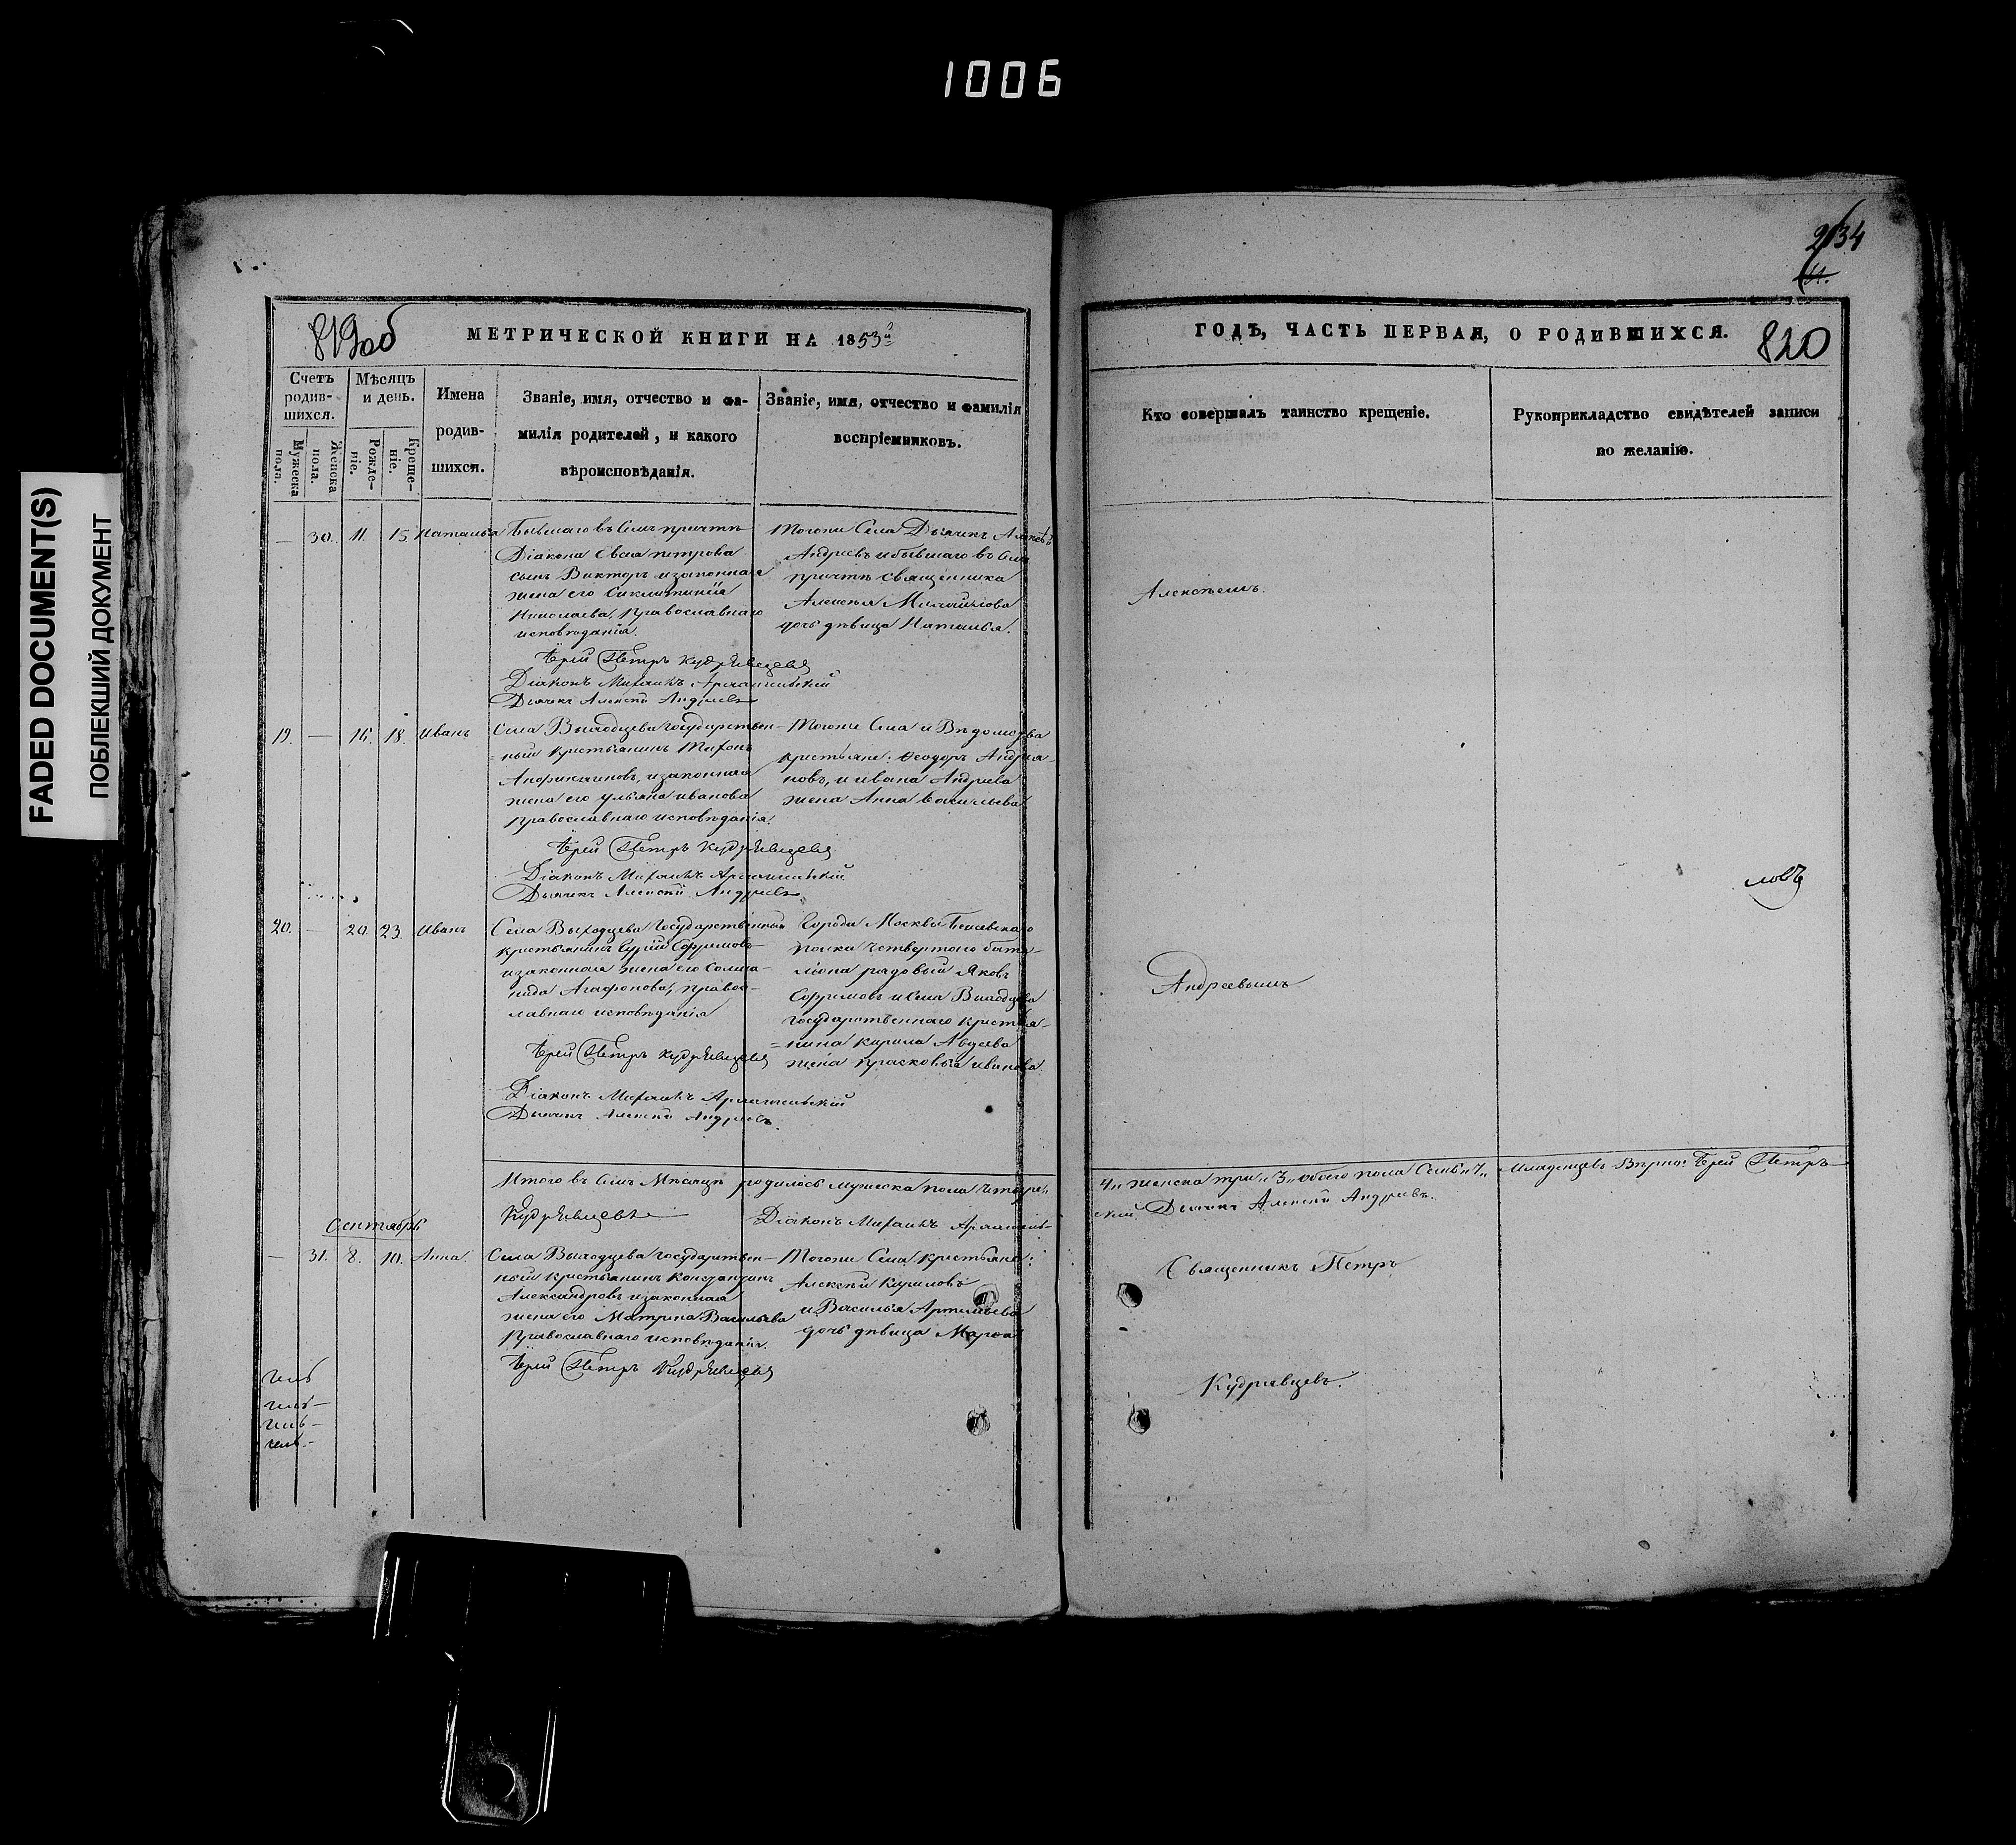 1006
FADED DOCUMENT(S)
ПОБЛЕКШИЙ ДОКУМЕНТ
819об
МЕТРИЧЕСКОЙ КНИГИ НА 1853й
Счетъ родив-шихся.
Мѣсяцъ и день.
Имена родив-шихся.
Званіе, имя, отчество и фа-
милія родителей, и какого
вѣроисповѣданія.
Званіе, имя, отчество и фамилія
воспріемниковъ.
Мужеска пола.
Женска пола.
Рожде-ніе.
Креще-ніе.
— 30. 11. 15. Наталья
Бывшаго въ семъ причтѣ
Діакона Евсея Петрова
сынъ Викторъ и законная
жена его
Николаева, Православнаго
исповѣданія.
Іерей Петръ Кудрявцевъ
Діаконъ Михаилъ Архангельскій
Дьячекъ Алексѣй Андреевъ
Тогоже Села Дьячекъ Алексѣй
Андреевъ и бывшаго въ Семъ
причтѣ священника
Алексѣя Михайлова
дочь дѣвица Наталья.
19. — 16. 18. Иванъ
Села Выходцева Государствен-
ный крестьянинъ Тихонъ
и законная
жена его Ульяна Иванова
Православнаго исповѣданія.
Іерей Петръ Кудрявцевъ
Діаконъ Михаилъ Архангельскій
Дьячекъ Алексѣй Андреевъ
Тогоже Села и Вѣдомства
крестьяне: Ѳеодоръ Андрея-
новъ, и Ивана Андреева
жена Анна Васильева
20. — 20. 23. Иванъ
Села Выходцева Государственный
крестьянинъ Гурій Ефремовъ
и законная жена его Соломо-
нида Агафонова, Правос-
лавнаго исповѣданія
Іерей Петръ Кудрявцевъ
Діаконъ Михаилъ Архангельскій
Дьячекъ Алексѣй Андреевъ.
Города Москвы
полка четвертаго бата-
ліона рядовый Яковъ
Ефремовъ и Села Выходцева
Государственнаго крестья-
нина Кирила Авдеева
жена Прасковья Иванова.
Итого въ семъ Мѣсяцѣ родилось мужеска пола четыре„
Кудрявцевъ
Діаконъ Михаилъ Архангель-
Сентябрь
— 31. 8. 10. Анна.
Села Выходцева Государствен-
ный крестьянинъ Константинъ
Александровъ и законная
жена его Матрона Васильева
Православнаго исповѣданія.
Іерей Петръ Кудрявцевъ
Тогоже Села крестьяне:
Алексѣй Кириловъ
и Василья Артемьева
дочь дѣвица Марѳа
2634
ГОДЪ, ЧАСТЬ ПЕРВАЯ, О РОДИВШИХСЯ.
820
Кто совершалъ таинство крещеніе.
Рукоприкладство свидѣтелей записи
по желанію.
Алексѣемъ.
ловъ
Андреевымъ
4„ женска три„ 3„ обоего пола Семь„ 7„ младенцевъ Вѣрно: Іерей Петръ
скій Дьячекъ Алексѣй Андреевъ.
Священникъ Петръ
Кудрявцевъ.